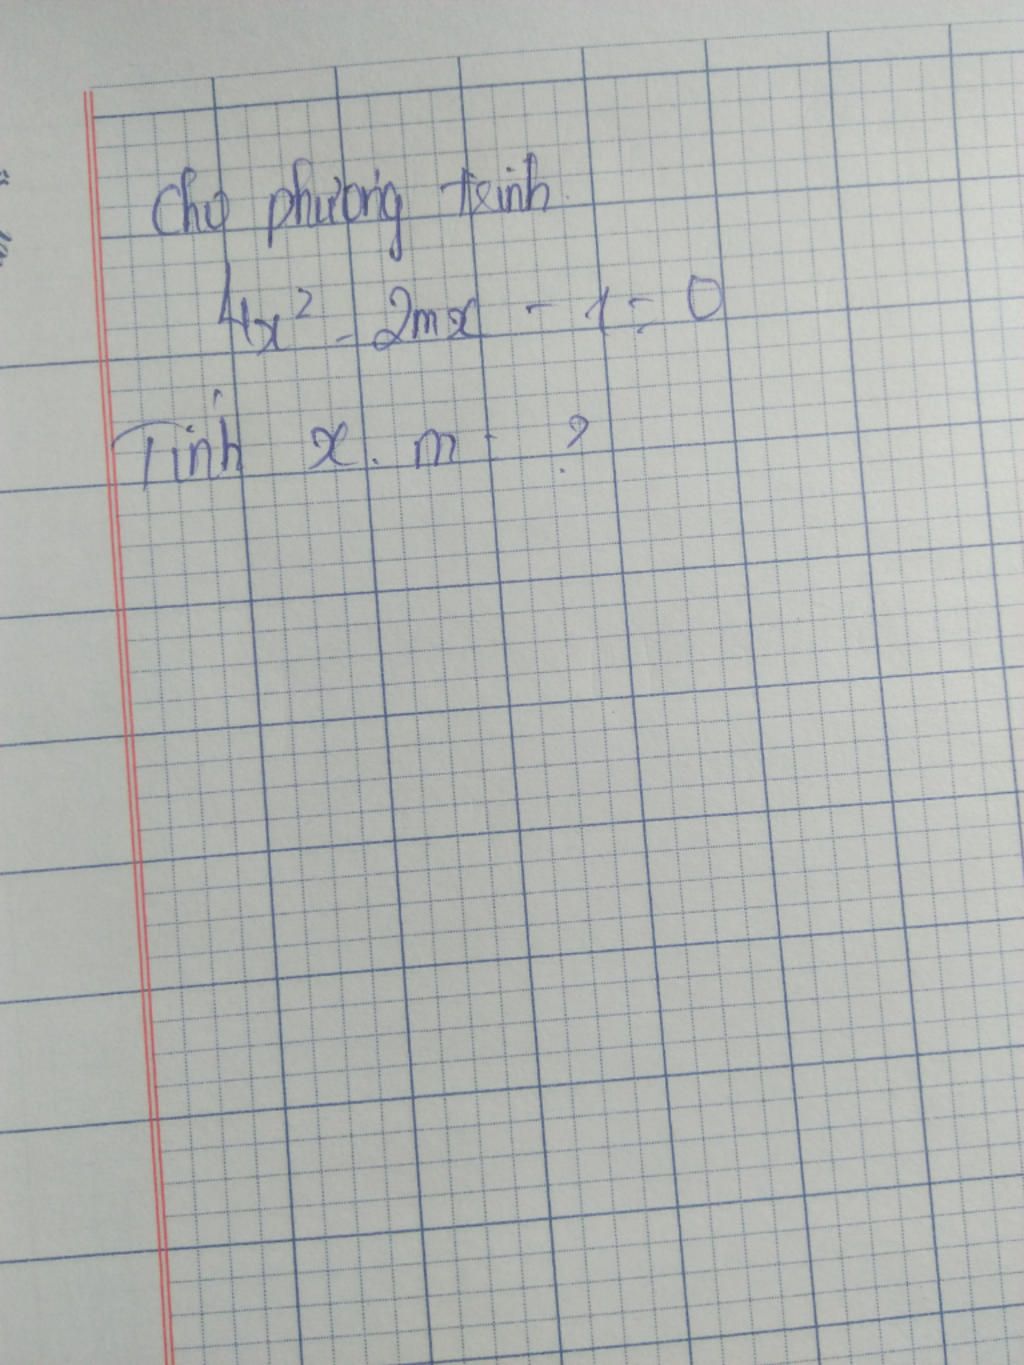 Cho phương trình
4x² - 2mx - 1 = 0
Tính x . m = ?